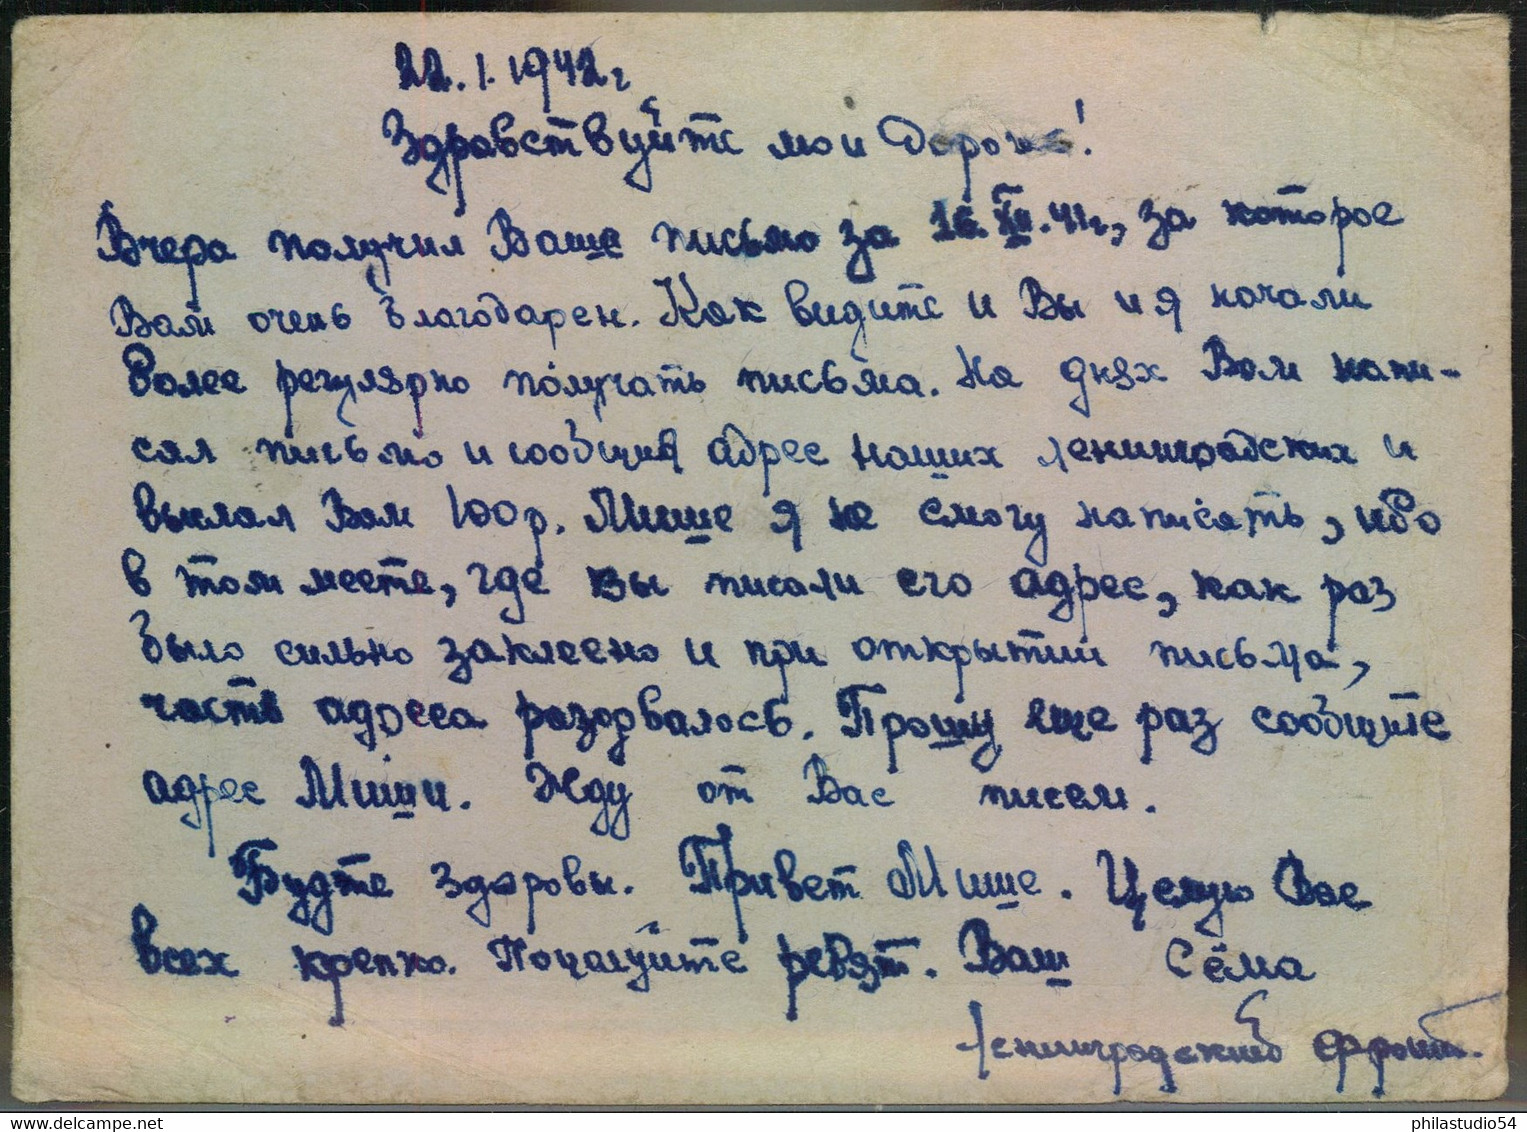 22.I.1942г
Здравствуйте мои Дорогие!
Вчера получил Ваше письмо за 16.XII.41г, за которое
Вам очень благодарен. Как видите и Вы и я начали
более регулярно получать письма. На днях Вам напи-
сал письмо и сообщил адрес наших ленинградских и
выслал Вам 100р. Мише я не смогу написать, ибо
в том месте, где вы писали его адрес, как раз
было сильно заклеено и при открытии письма,
часть адреса разорвалось. Прошу еще раз сообщите
адрес Миши. Жду от Вас писем.
Будте здоровы. Привет Мише. Целую Вас
всех крепко. Поцелуйте ребят. Ваш Сёма
Ленинградский фронт.
delcampe.net
philastudio54